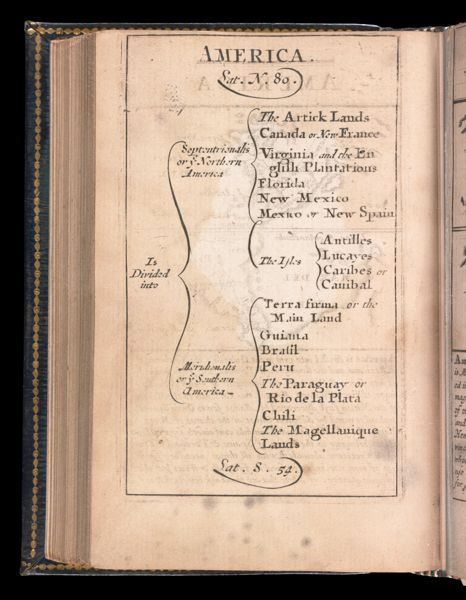 AMERICA.
Lat. N. 80.
The Artick Lands
Canada or New France
Septentrionalis
or yᵉ Northern
America
Virginia and the En
glish Plantations
Florida
New Mexico
Mexico or New Spain
Is
Divided
into
The Isles
Antilles
Lucayes
Caribes or
Canibal
Terra firma or the
Main Land
Guiana
Brasil
Peru
Meridionalis
or yᵉ Southern
America
The Paraguay or
Rio de la Plata
Chili
The Magellanique
Lands
Lat. S. 54.